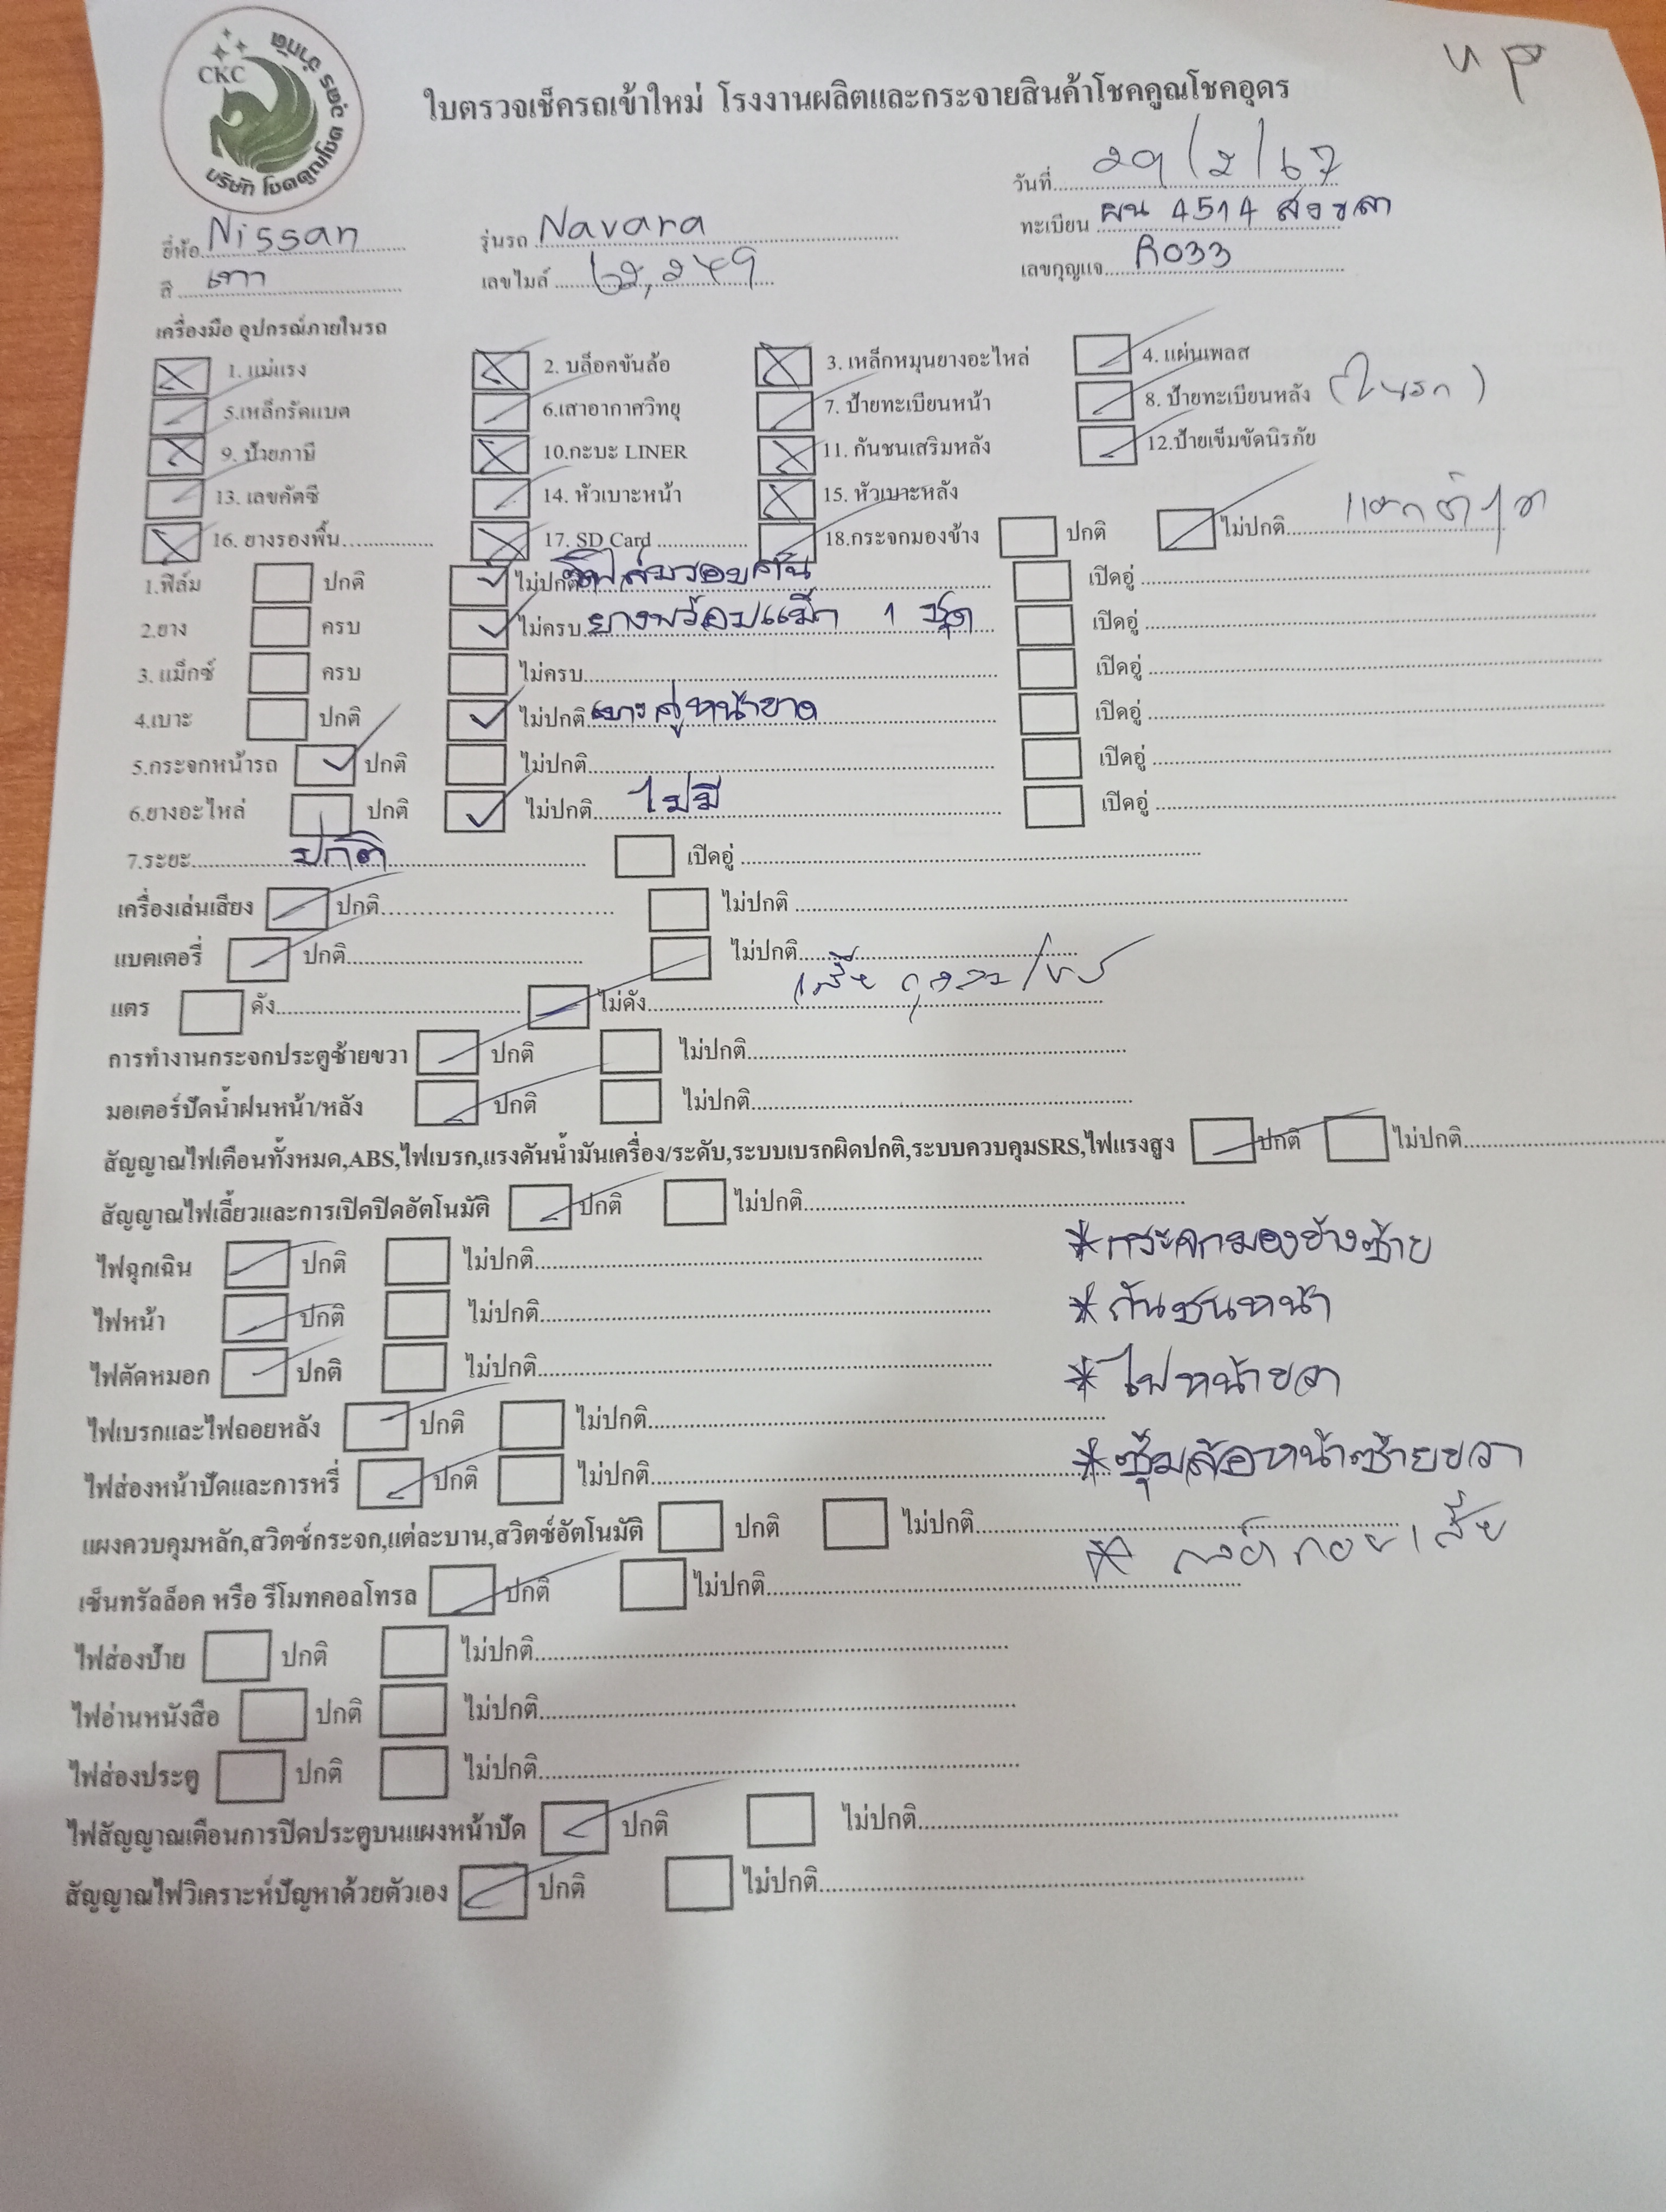 CKC
บริษัท โชคคูณโชค อุดร จำกัด
ใบตรวจเช็ครถเข้าใหม่ โรงงานผลิตและกระจายสินค้าโชคคูณโชคอุดร
วันที่ 29/2/67
ยี่ห้อ Nissan รุ่นรถ Navara ทะเบียน ผน 4514 สงขลา
สี เทา เลขไมล์ เลขกุญแจ R033
เครื่องมือ อุปกรณ์ภายในรถ
1. แม่แรง 2. บล็อคขันล้อ 3. เหล็กหมุนยางอะไหล่ 4. แผ่นเพลส
5.เหล็กรัดแบต 6.เสาอากาศวิทยุ 7. ป้ายทะเบียนหน้า 8. ป้ายทะเบียนหลัง (ในรถ)
9. ป้ายภาษี 10.กะบะ LINER 11. กันชนเสริมหลัง 12.ป้ายเข็มขัดนิรภัย
13. เลขคัตซี 14. หัวเบาะหน้า 15. หัวเบาะหลัง
16. ยางรองพื้น 17. SD Card 18.กระจกมองข้าง ปกติ ไม่ปกติ
1.ฟิล์ม ปกติ ไม่ปกติ ฟิล์มรอบคัน เปิดอู่
2.ยาง ครบ ไม่ครบ ยางพร้อมแม็ก 1 ชุด เปิดอู่
3. แม็กซ์ ครบ ไม่ครบ เปิดอู่
4.เบาะ ปกติ ไม่ปกติ เบาะคู่หน้าขาด เปิดอู่
5.กระจกหน้ารถ ปกติ ไม่ปกติ เปิดอู่
6.ยางอะไหล่ ปกติ ไม่ปกติ ไม่มี เปิดอู่
7.ระยะ ปกติ เปิดอู่
เครื่องเล่นเสียง ปกติ ไม่ปกติ
แบตเตอรี่ ปกติ ไม่ปกติ
แตร ดัง ไม่ดัง
การทำงานกระจกประตูซ้ายขวา ปกติ ไม่ปกติ
มอเตอร์ปัดน้ำฝนหน้า/หลัง ปกติ ไม่ปกติ
สัญญาณไฟเตือนทั้งหมด,ABS,ไฟเบรก,แรงดันน้ำมันเครื่อง/ระดับ,ระบบเบรกผิดปกติ,ระบบควบคุมSRS,ไฟแรงสูง ปกติ ไม่ปกติ
สัญญาณไฟเลี้ยวและการเปิดปิดอัตโนมัติ ปกติ ไม่ปกติ
*กระจกมองข้างซ้าย
ไฟฉุกเฉิน ปกติ ไม่ปกติ
ไฟหน้า ปกติ ไม่ปกติ *กันชนหน้า
ไฟตัดหมอก ปกติ ไม่ปกติ *ไฟหน้าขวา
ไฟเบรกและไฟถอยหลัง ปกติ ไม่ปกติ
ไฟส่องหน้าปัดและการหรี่ ปกติ ไม่ปกติ *ซุ้มล้อหน้าซ้ายขวา
แผงควบคุมหลัก,สวิตซ์กระจก,แต่ละบาน,สวิตซ์อัตโนมัติ ปกติ ไม่ปกติ
* กล้องถอยเสีย
เซ็นทรัลล็อค หรือ รีโมทคอลโทรล ปกติ ไม่ปกติ
ไฟส่องป้าย ปกติ ไม่ปกติ
ไฟอ่านหนังสือ ปกติ ไม่ปกติ
ไฟส่องประตู ปกติ ไม่ปกติ
ไฟสัญญาณเตือนการปิดประตูบนแผงหน้าปัด ปกติ ไม่ปกติ
สัญญาณไฟวิเคราะห์ปัญหาด้วยตัวเอง ปกติ ไม่ปกติ